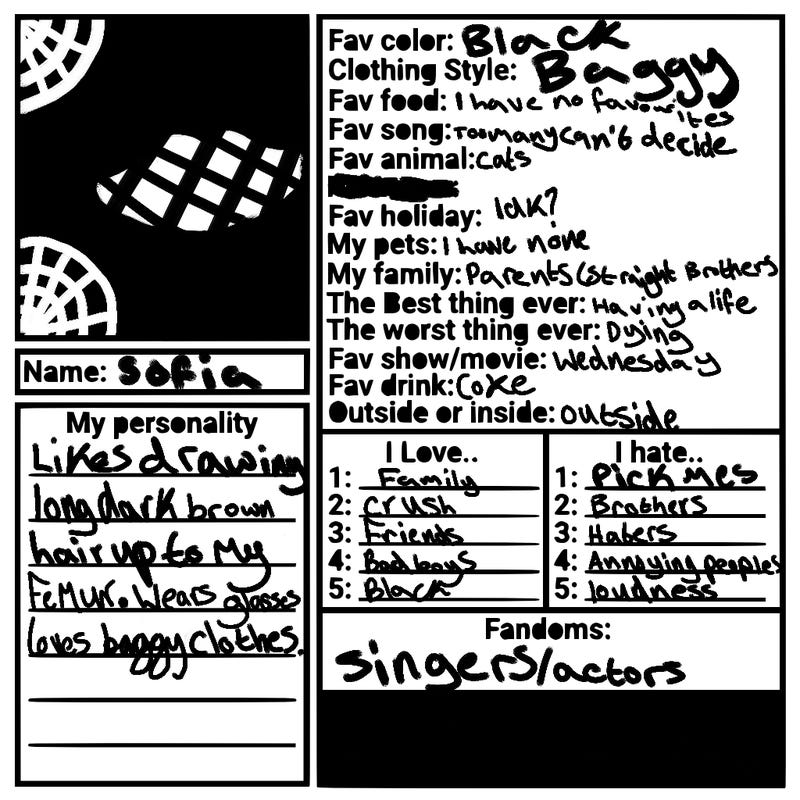 Name: Sofia
My personality
Likes drawing
long dark brown
hair up to My
FeMur. Wears glasses
loves baggy clothes.
Fav color: Black
Clothing Style: Baggy
Fav food: I have no favourites
Fav song: Too many can't decide
Fav animal: Cats
Fav holiday: Idk?
My pets: I have none
My family: Parents (Straight Brothers
The Best thing ever: Having a life
The worst thing ever: Dying
Fav show/movie: Wednesday
Fav drink: Coke
Outside or inside: outside
I Love..
1: Family
2: Crush
3: Friends
4: Bad boys
5: Black
I hate..
1: Pick Mes
2: Brothers
3: Haters
4: Annoying peoples
5: loudness
Fandoms:
singers/actors